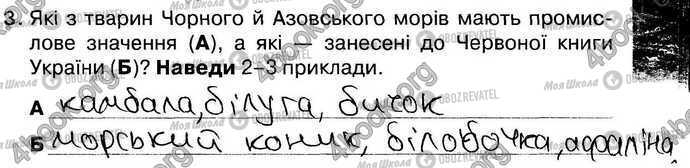 3. Які з тварин Чорного й Азовського морів мають промис-
лове значення (А), а які — занесені до Червоної книги
України (Б)? Наведи 2–3 приклади.
А камбала, білуга, бичок
Б морський коник, білобочка, афаліна